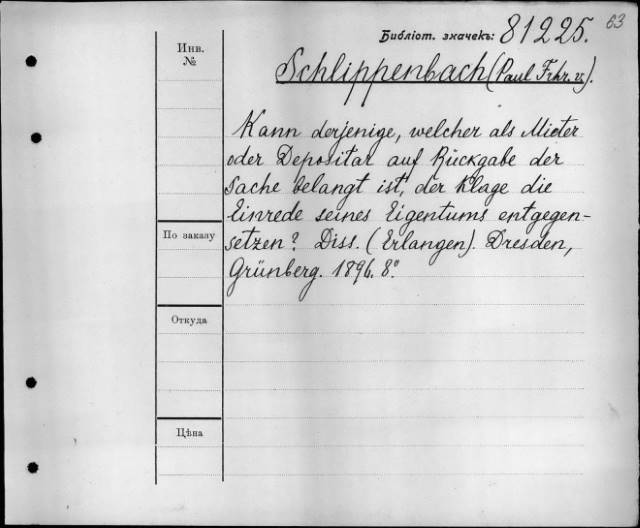 63
Библіот. значекъ: 81225.
Инв.
№
Schlippenbach (Paul Frhr. v.).
Kann derjenige, welcher als Mieter
oder Depositar auf Rückgabe der
Sache belangt ist, der Klage die
Einrede seines Eigentums entgegen-
setzen? Diss. (Erlangen). Dresden,
Grünberg. 1896. 8°.
По заказу
Откуда
Цѣна